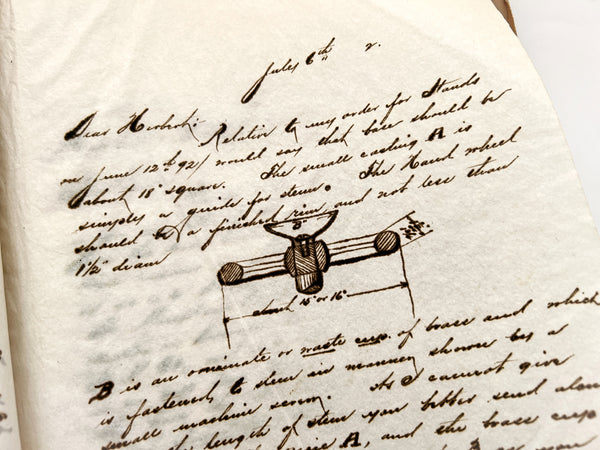 July 6th 2.
Dear Herbert: Relative to my order for Stands
on June 12th 92/ would say that base should be
about 18" square. The small casting A is
simply a guide for stem. The Hand wheel
should be a finished rim and not less than
1½" diam
3"
about 15" or 16"
B is an ornimate or waste cup of brass and which
is fastened to stem in manner shown by a
small machine screw. As I cannot give
the length of stem you better send along
A, and the brass cup